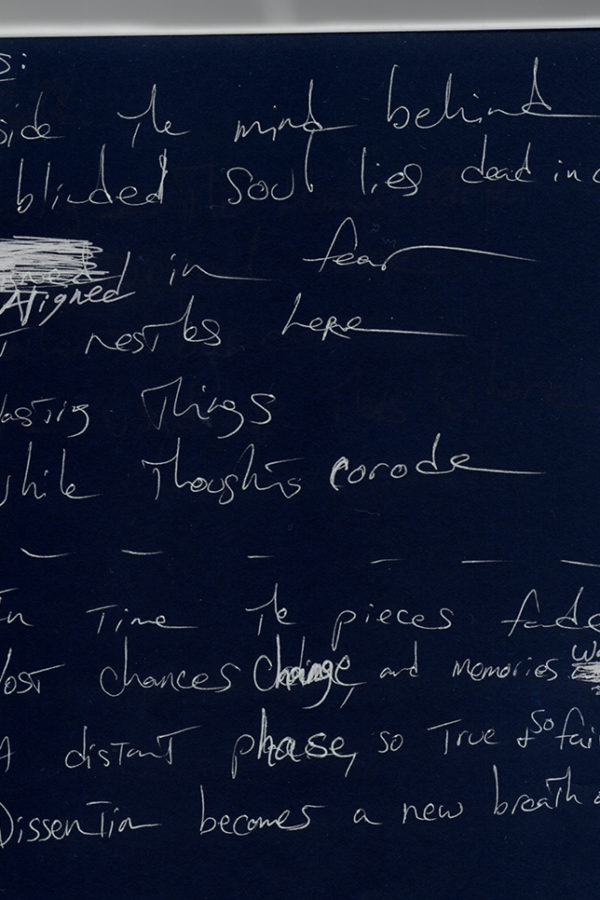 s:
side The mind behind
blinded soul lies dead in
Aligned in fear
nestles here
lasting Things
while Thoughts corode
In Time The pieces fade
lost chances change, and memories
A distant phase, so True & so fair
Dissention becomes a new breath